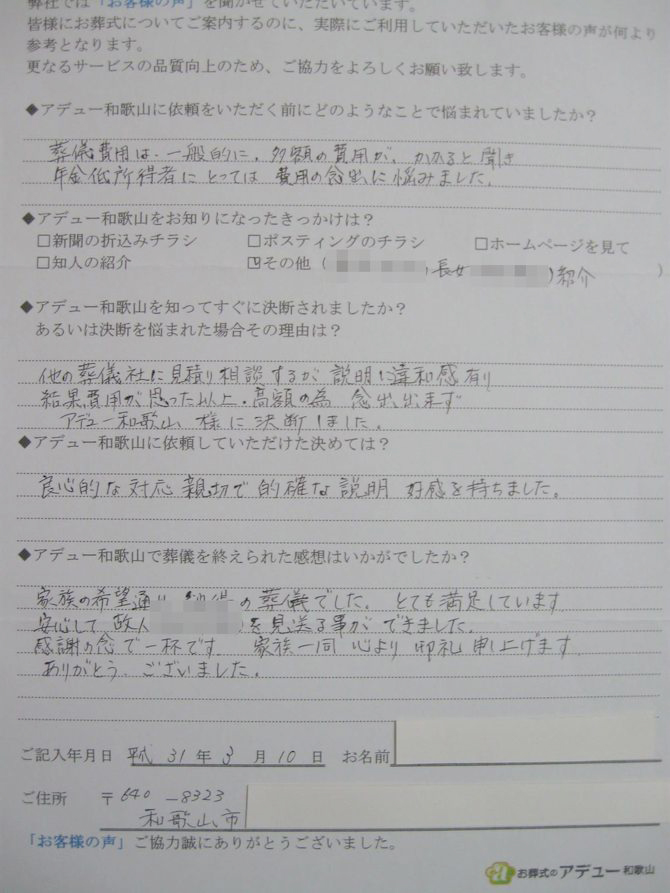 弊社では「お客様の声」を聞かせていただいています。
皆様にお葬式についてご案内するのに、実際にご利用していただいたお客様の声が何より
参考となります。
更なるサービスの品質向上のため、ご協力をよろしくお願い致します。
◆アデュー和歌山に依頼をいただく前にどのようなことで悩まれていましたか？
葬儀費用は、一般的に、多額の費用が、かかると聞き
年金低所得者にとっては 費用の念出に悩みました。
◆アデュー和歌山をお知りになったきっかけは？
□新聞の折込みチラシ □ポスティングのチラシ □ホームページを見て
□知人の紹介 ☑その他（ 長女 紹介 ）
◆アデュー和歌山を知ってすぐに決断されましたか？
あるいは決断を悩まれた場合その理由は？
他の葬儀社に見積り相談するが 説明に違和感有り
結果費用が思った以上・高額の為 念出出来ず
アデュー和歌山 様に決断しました。
◆アデュー和歌山に依頼していただけた決めては？
良心的な対応 親切で的確な説明 好感を持ちました。
◆アデュー和歌山で葬儀を終えられた感想はいかがでしたか？
家族の希望通り の葬儀でした。 とても満足しています
安心して 故人 を見送る事ができました。
感謝の念で一杯です 家族一同 心より 御礼申し上げます
ありがとう ございました。
ご記入年月日 平成 31 年 3 月 10 日 お名前
ご住所 〒640-8323
和歌山市
「お客様の声」ご協力誠にありがとうございました。
お葬式のアデュー和歌山